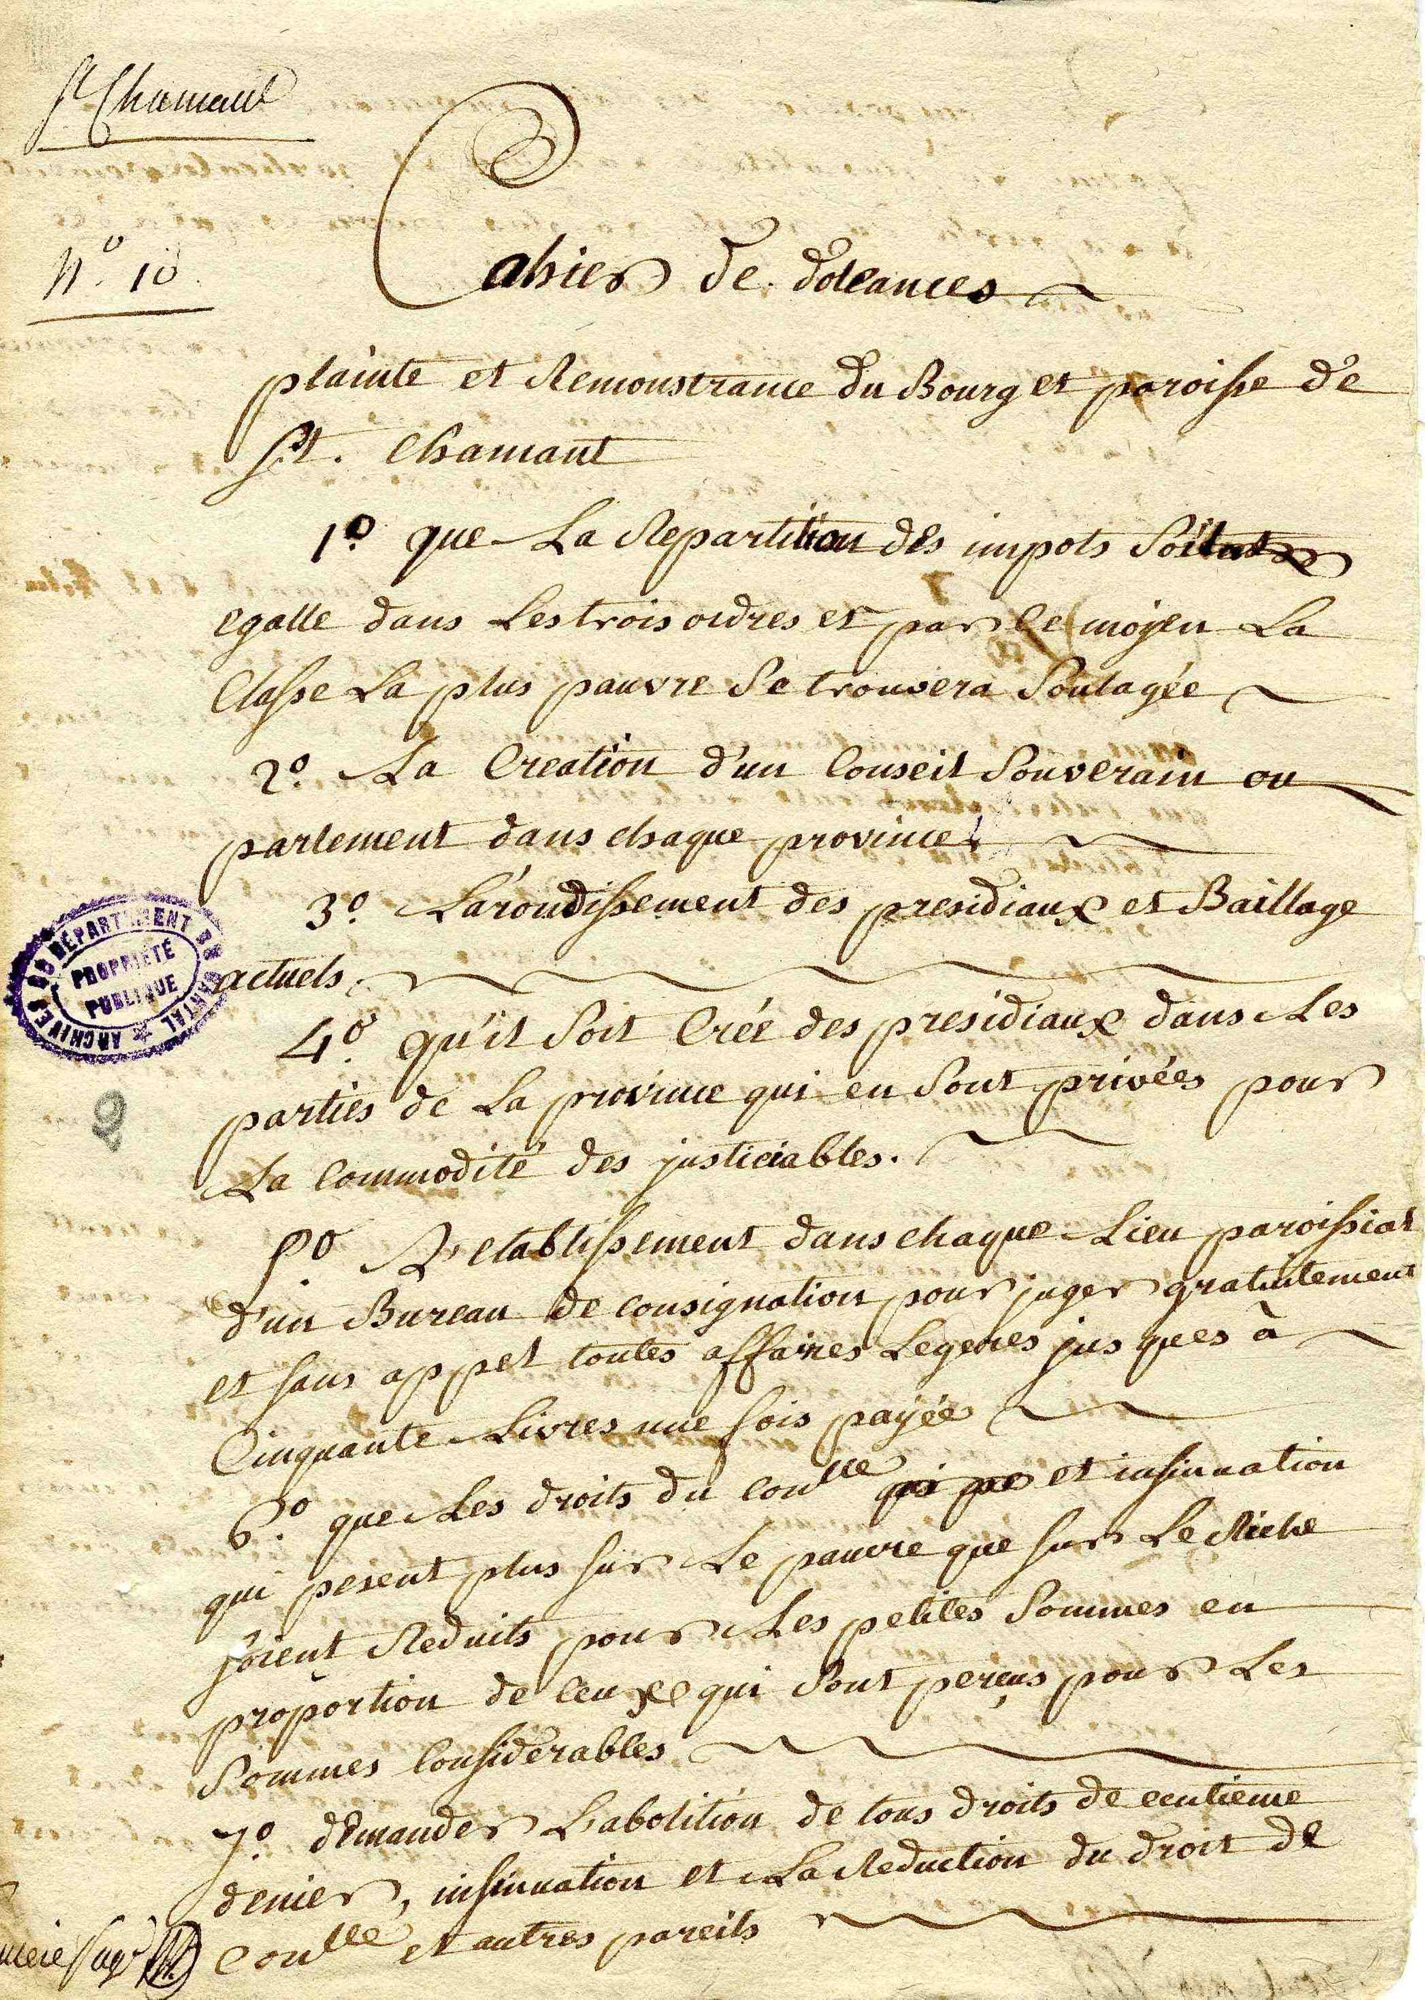 St Chamant
N.º 10
Cahier de doleances
plainte et Remonstrance du Bourg et paroisse de
St. Chamant
1º. que La Repartition des impots Soit
egalle dans Les trois ordres et par ce moyen La
Classe La plus pauvre Se trouvera Soulagée
2º. La Creation d'un Conseil Souverain ou
parlement dans chaque province
3º. L'arondissement des presidiaux et Baillage
actuels.
ARCHIVES DU DÉPARTEMENT DU CANTAL
PROPRIÉTÉ
PUBLIQUE
4º. qu'il Soit Créé des presidiaux dans Les
parties de La province qui en Sont privées pour
La Commodité des justiciables.
5º. L'etablissement dans chaque Lieu paroissial
d'un Bureau de consignation pour juger gratuitement
et sans appel toutes affaires Legeres jusques à
Cinquante Livres une fois payée
6º. que Les droits du conlle et insinuation
qui pesent plus sur Le pauvre que sur Le Riche
soient Reduits pour Les petites Sommes en
proportion de Ceux qui Sont perçus pour Les
Sommes Considerables
7º. demander L'abolition de tous droits de centieme
denier, insinuation et La Reduction du droit de
conlle et autres pareils